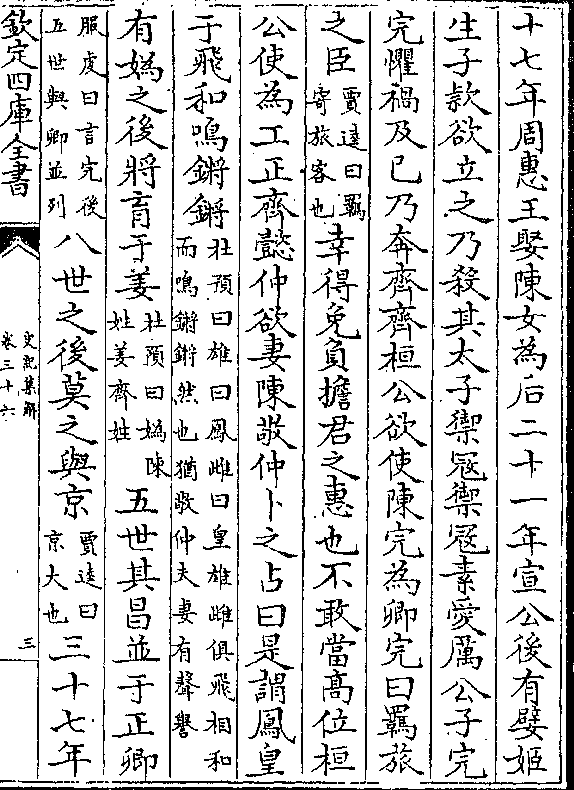 十七年周惠王娶陳女為后二十一年宣公後有嬖姬
生子款欲立之乃殺其太子禦寇禦寇素愛厲公子完
完懼禍及已乃奔齊齊桓公欲使陳完為卿完曰羈旅
之臣賈逵曰羈寄旅客也幸得免負擔君之惠也不敢當高位桓
公使為工正齊懿仲欲妻陳敬仲卜之占曰是謂鳳皇
于飛和鳴鏘鏘杜預曰雄曰鳳雌曰皇雄雌俱飛相和而鳴鏘鏘然也猶敬仲夫妻有聲譽
有媯之後將育于姜杜預曰媯陳姓姜齊姓五世其昌並于正卿
服虔曰言完後五世與卿並列八世之後莫之與京賈逵曰京大也三十七年
欽定四庫全書
史記集解
卷三十六
三